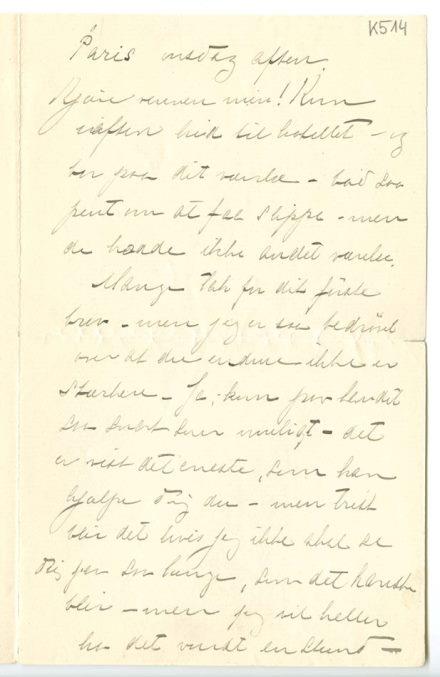 K514
Paris onsdag aften.
Kjære vennen min! Kom
iaften hid til hotellet – og
bor paa dit værelse – bad saa
pent om at faa slippe – men
de hadde ikke andet værelse.
Mange tak for dit første
brev – men jeg er saa bedrøvet
over at du endnu ikke er
stærkere – Ja, kom paa landet
saa snart som muligt – det
er visst det eneste, som kan
hjælpe dig du – men trist
blir det hvis jeg ikke skal se
dig paa saa længe, som det kanske
blir – men jeg vil heller
ha det vondt en stund –